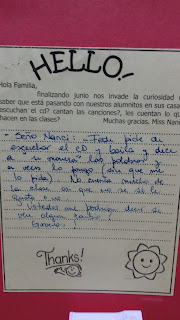 HELLO!
Hola Familia,
finalizando junio nos invade la curiosidad
saber que está pasando con nuestros alumnitos en sus casa
escuchan el cd? cantan las canciones?, les cuentan lo qu
hacen en las clases? Muchas gracias. Miss Nan
- Seño Nanci: Fede pide de
escuchar el CD y baila y dice
a su manera las palabras y
a veces lo pongo (sin que me
lo pida). No cuenta mucho de
la clase así que no se si le
gusta o no.
Ustedes me podrían decir si
ven algun cambio!
Gracias.
Thanks!